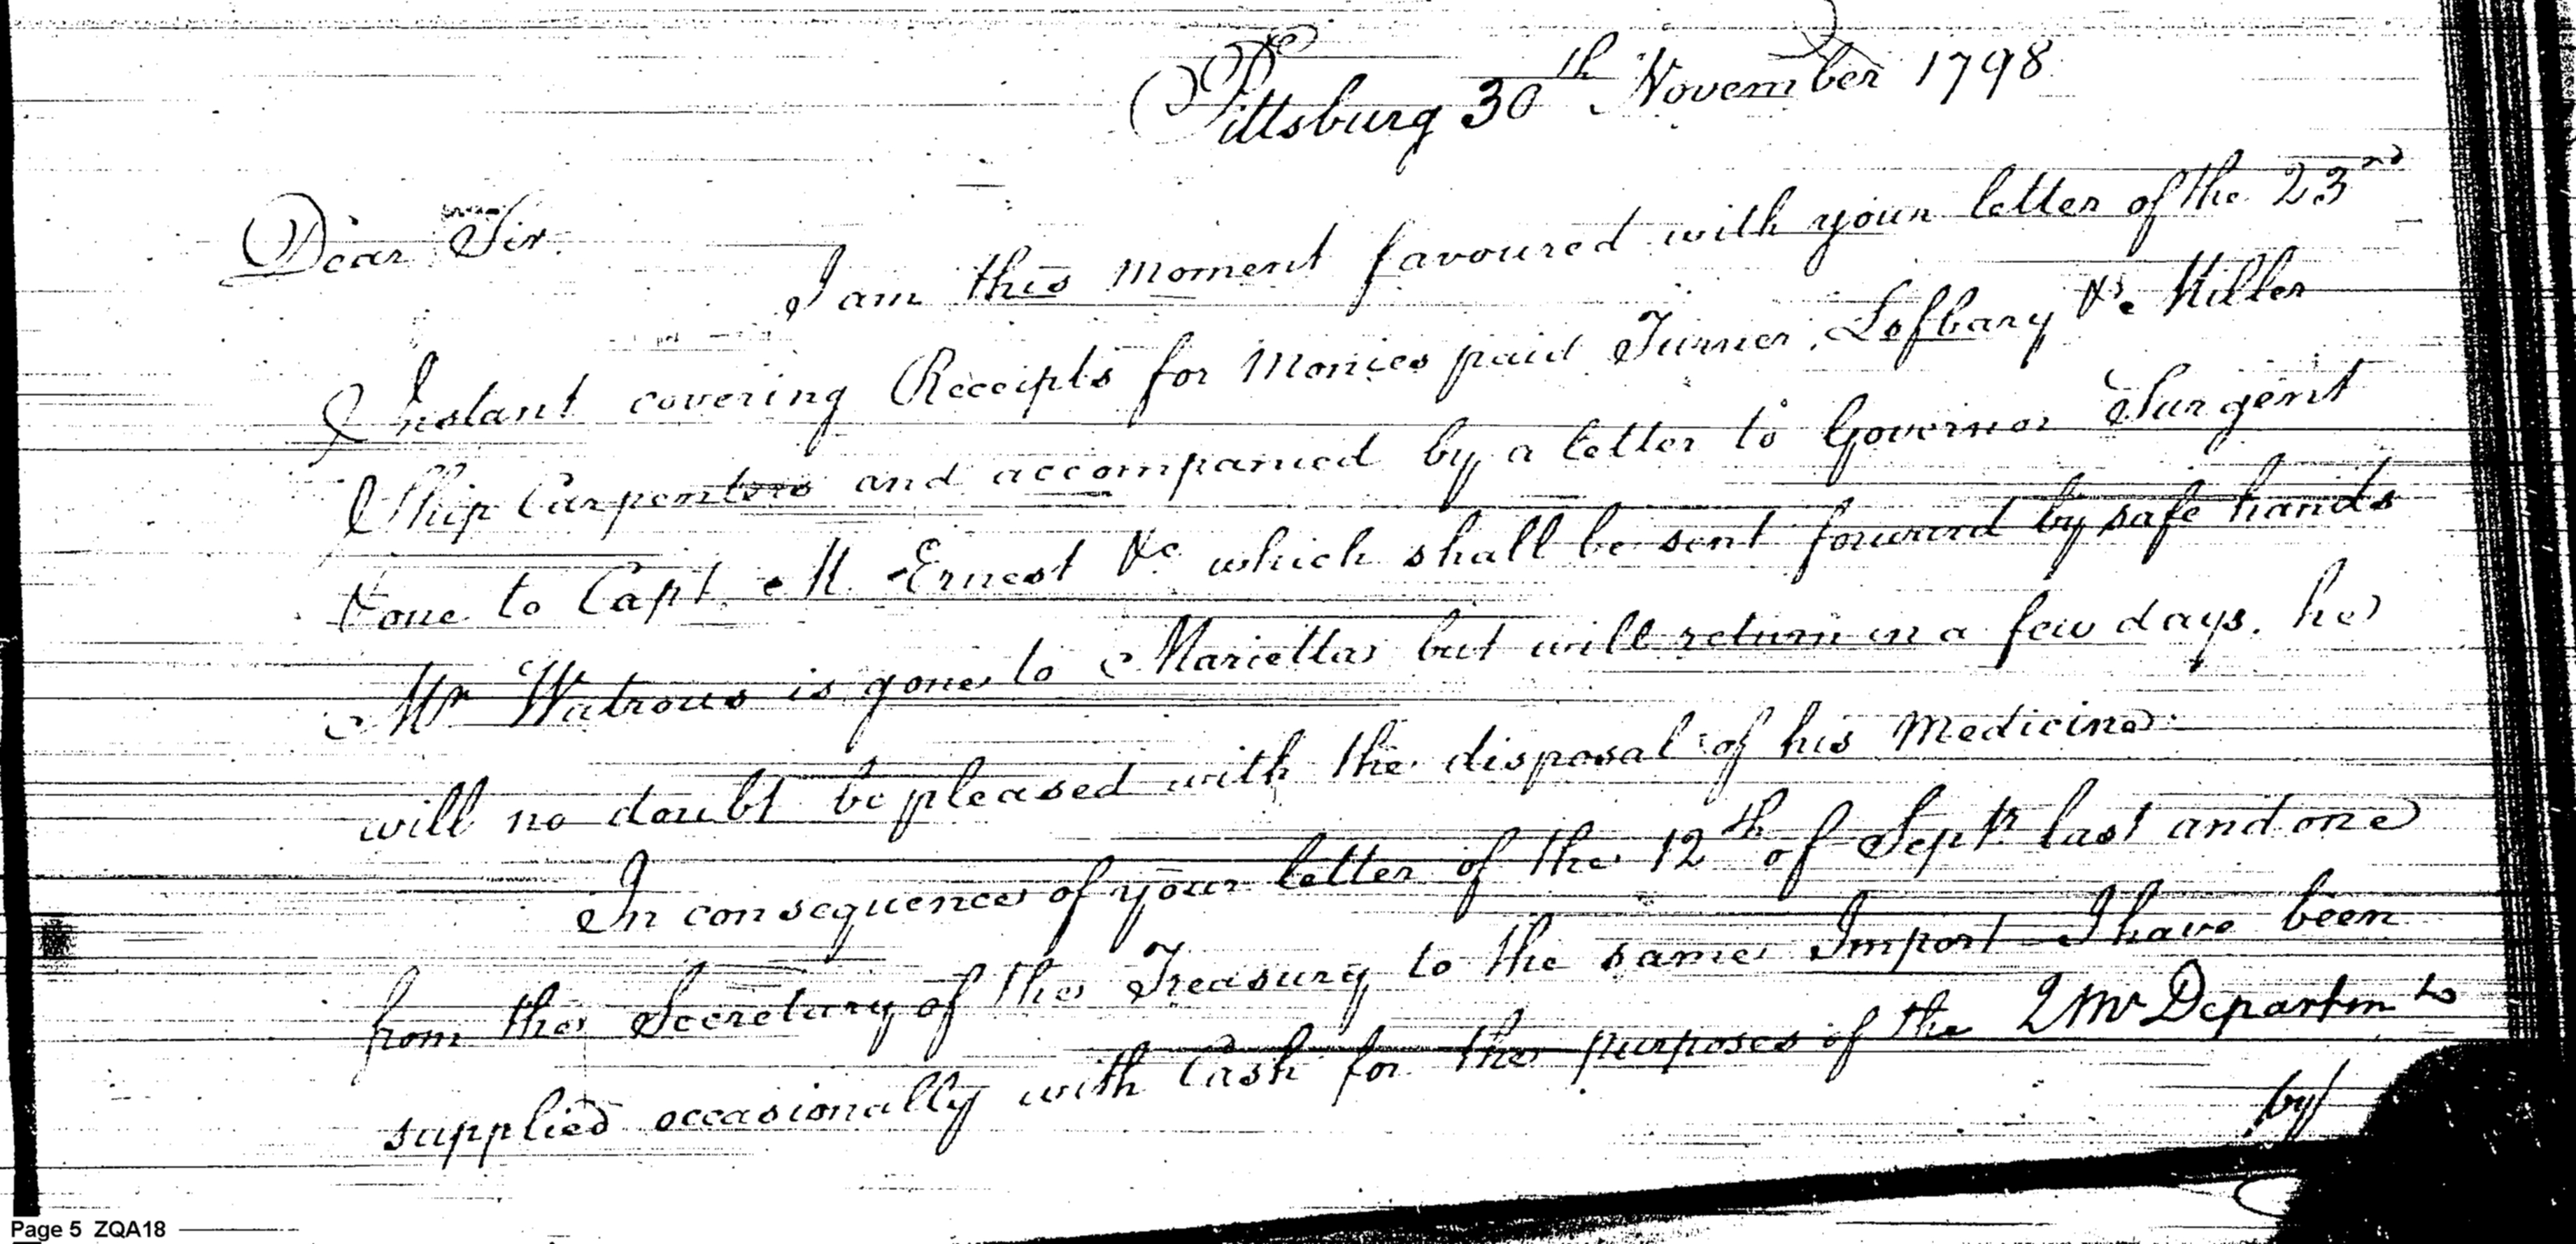 Pittsburg 30th November 1798
Dear Sir.
I am this moment favoured with your letter of the 23rd
Instant covering Receipts for Monies paid Turner, Lefbary & Miller
Ship Carpenters and accompanied by a letter to Governor Surgent
& one to Capt. M. Ernest &c which shall be sent forward by safe hands
Mr Watrous is gone to Marietta but will return in a few days. he
will no doubt be pleased with the disposal of his Medicine
In consequence of your letter of the 12th of Septr. last and one
from the Secretary of the Treasury to the same Import I have been
supplied occasionally with Cash for the purposes of the QMr Departmts
by
Page 5 ZQA18